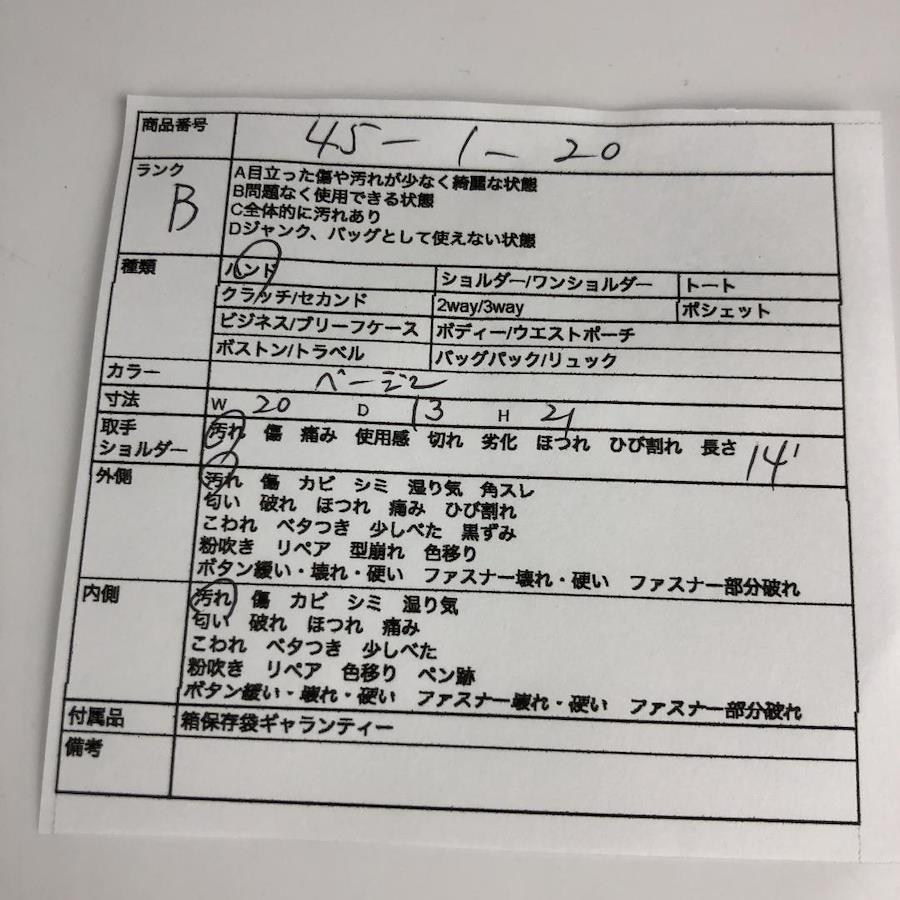 商品番号 45-1-20
ランク B
A目立った傷や汚れが少なく綺麗な状態
B問題なく使用できる状態
C全体的に汚れあり
Dジャンク、バッグとして使えない状態
種類 ハンド ショルダー/ワンショルダー トート
クラッチ/セカンド 2way/3way ポシェット
ビジネス/ブリーフケース ボディー/ウエストポーチ
ボストン/トラベル バッグパック/リュック
カラー ベージュ
寸法 W 20 D 13 H 21
取手
ショルダー
汚れ 傷 痛み 使用感 切れ 劣化 ほつれ ひび割れ 長さ 14
外側 汚れ 傷 カビ シミ 湿り気 角スレ
匂い 破れ ほつれ 痛み ひび割れ
こわれ ベタつき 少しべた 黒ずみ
粉吹き リペア 型崩れ 色移り
ボタン緩い・壊れ・硬い ファスナー壊れ・硬い ファスナー部分破れ
内側 汚れ 傷 カビ シミ 湿り気
匂い 破れ ほつれ 痛み
こわれ ベタつき 少しべた
粉吹き リペア 色移り ペン跡
ボタン緩い・壊れ・硬い ファスナー壊れ・硬い ファスナー部分破れ
付属品 箱保存袋ギャランティー
備考